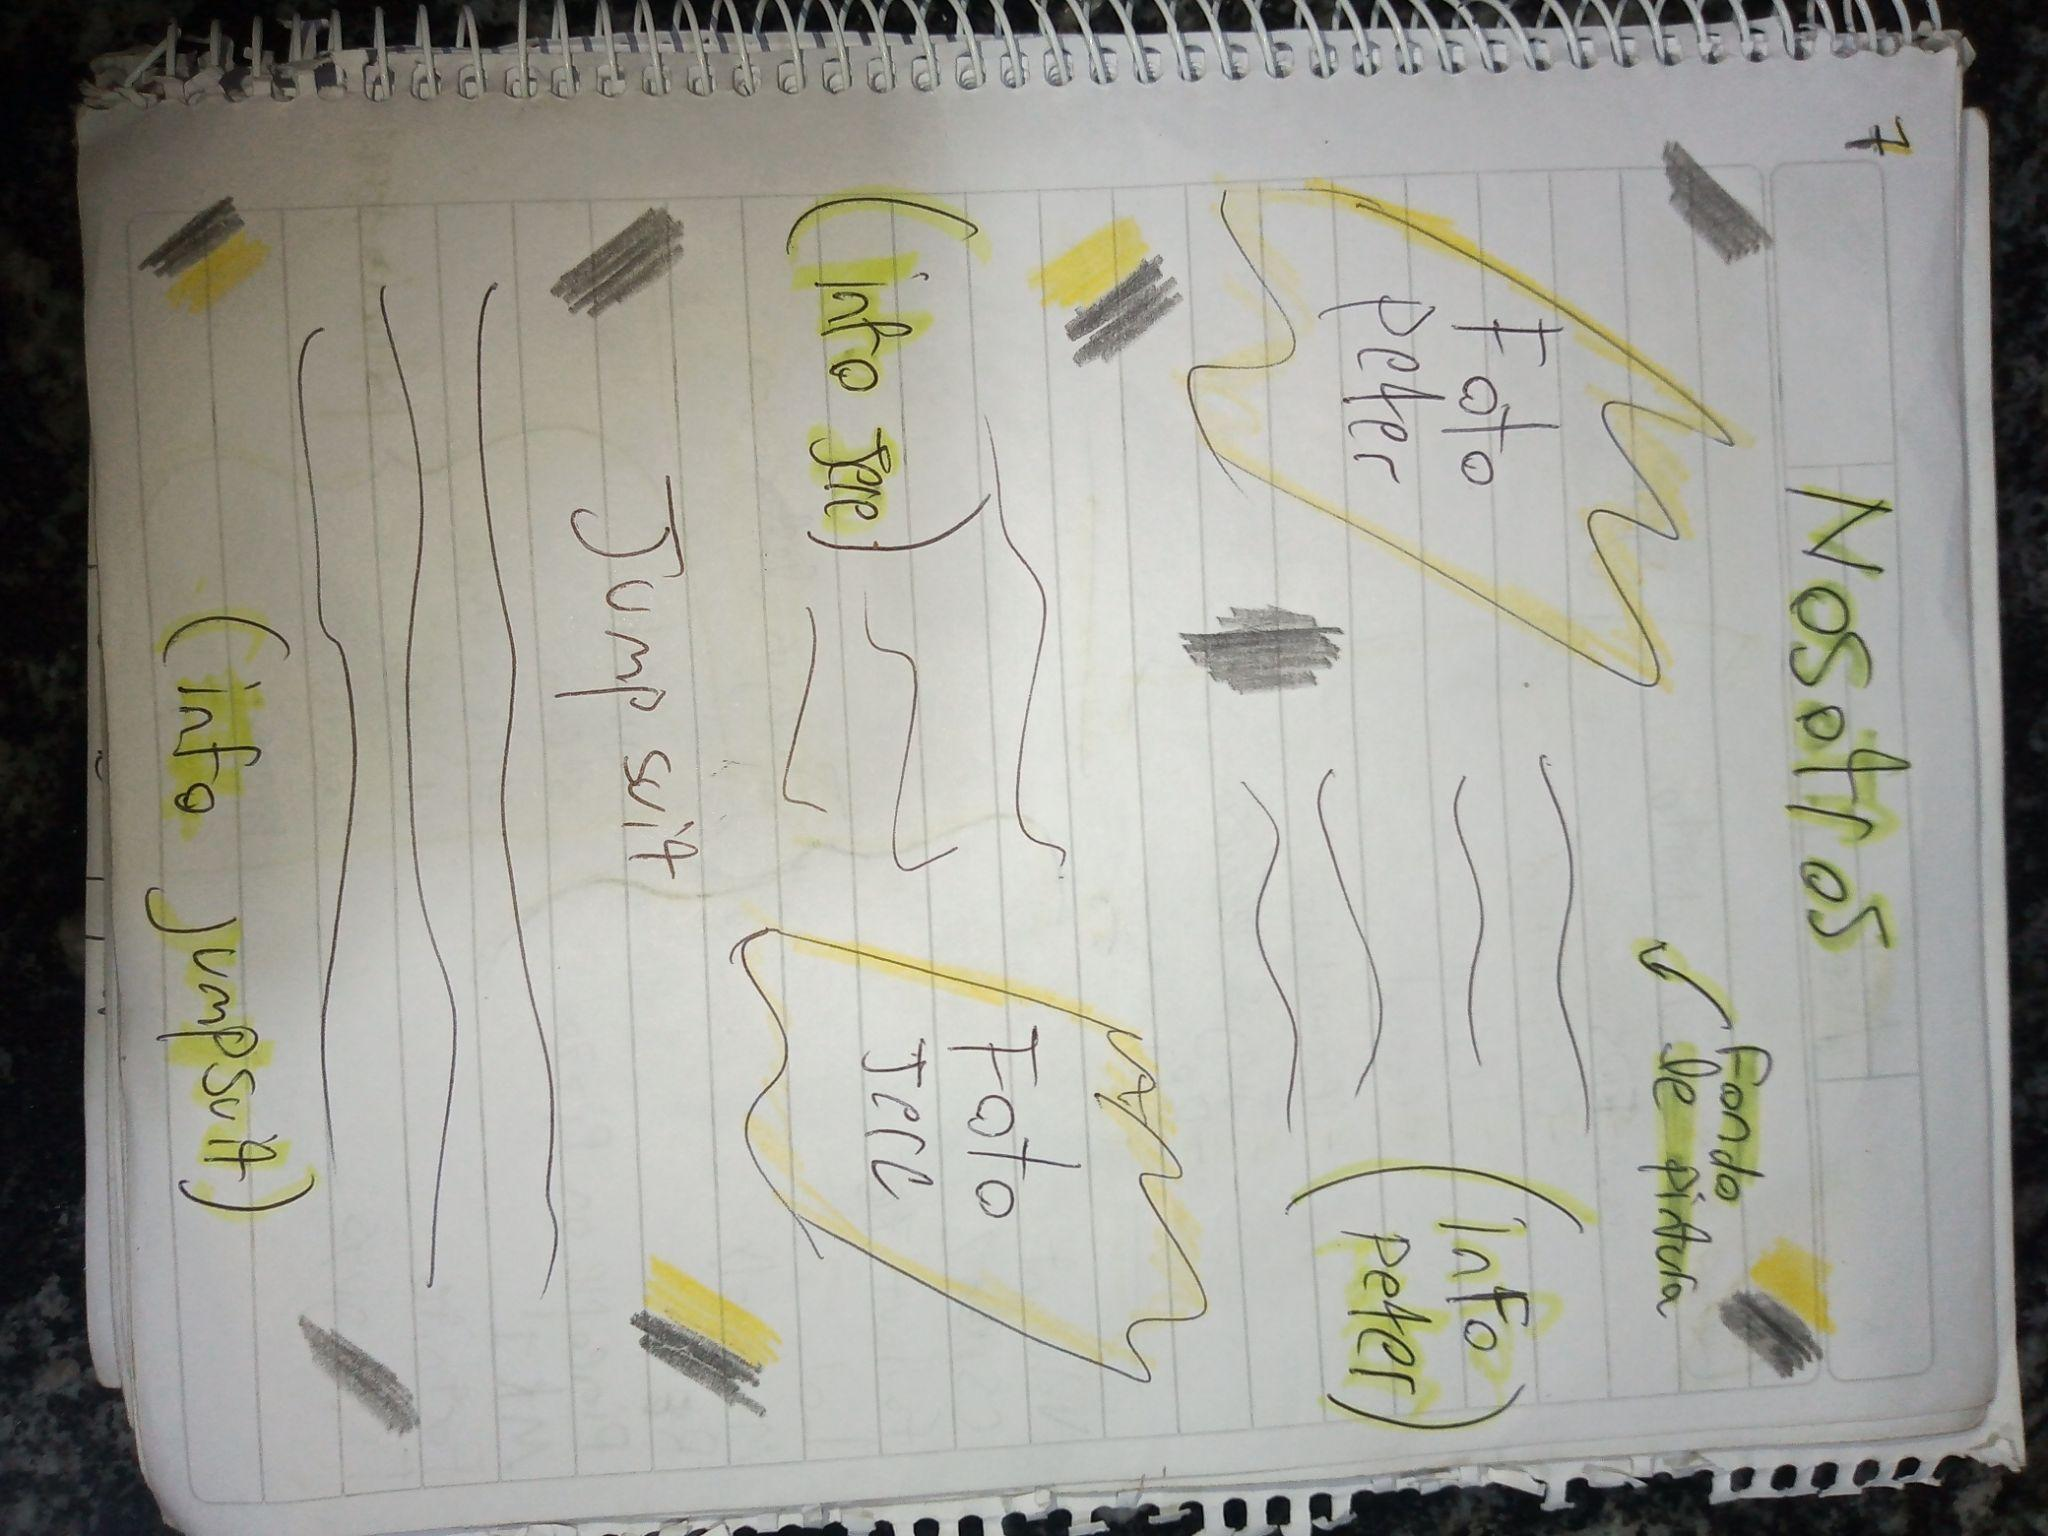 7
Nosotros
Fondo
de pintura
Foto
peter
(info
peter)
(info Jere)
Foto
Jere
Jump suit
(info jumpsuit)